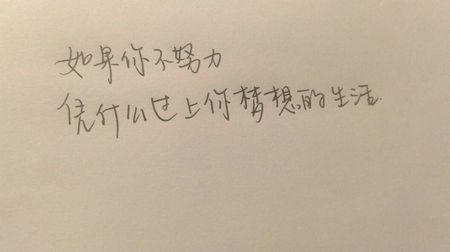 如果你不努力
凭什么过上你梦想的生活